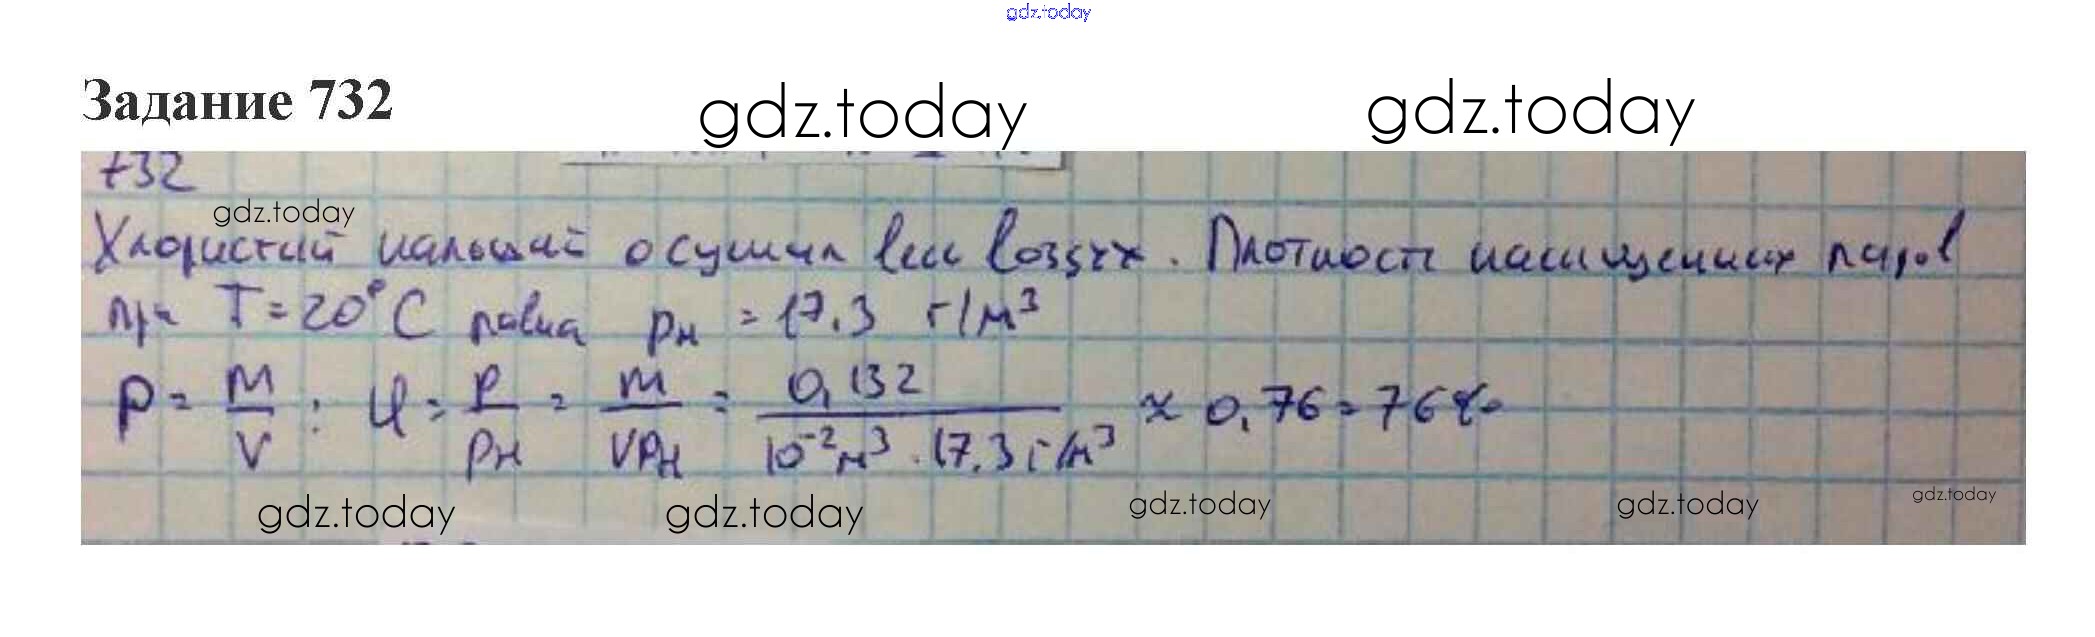 gdz.today
Задание 732
gdz.today gdz.today
732
gdz.today
Хлористий кальций осушил весь воздух. Плотность насищенних паров
при T = 20°C равна ρн = 17.3 г/м³
ρ = m/V ; φ = ρ/ρн = m/Vρн = 0,132/10⁻²м³ · 17.3 г/м³ ≈ 0,76 = 76%
gdz.today gdz.today gdz.today gdz.today gdz.today